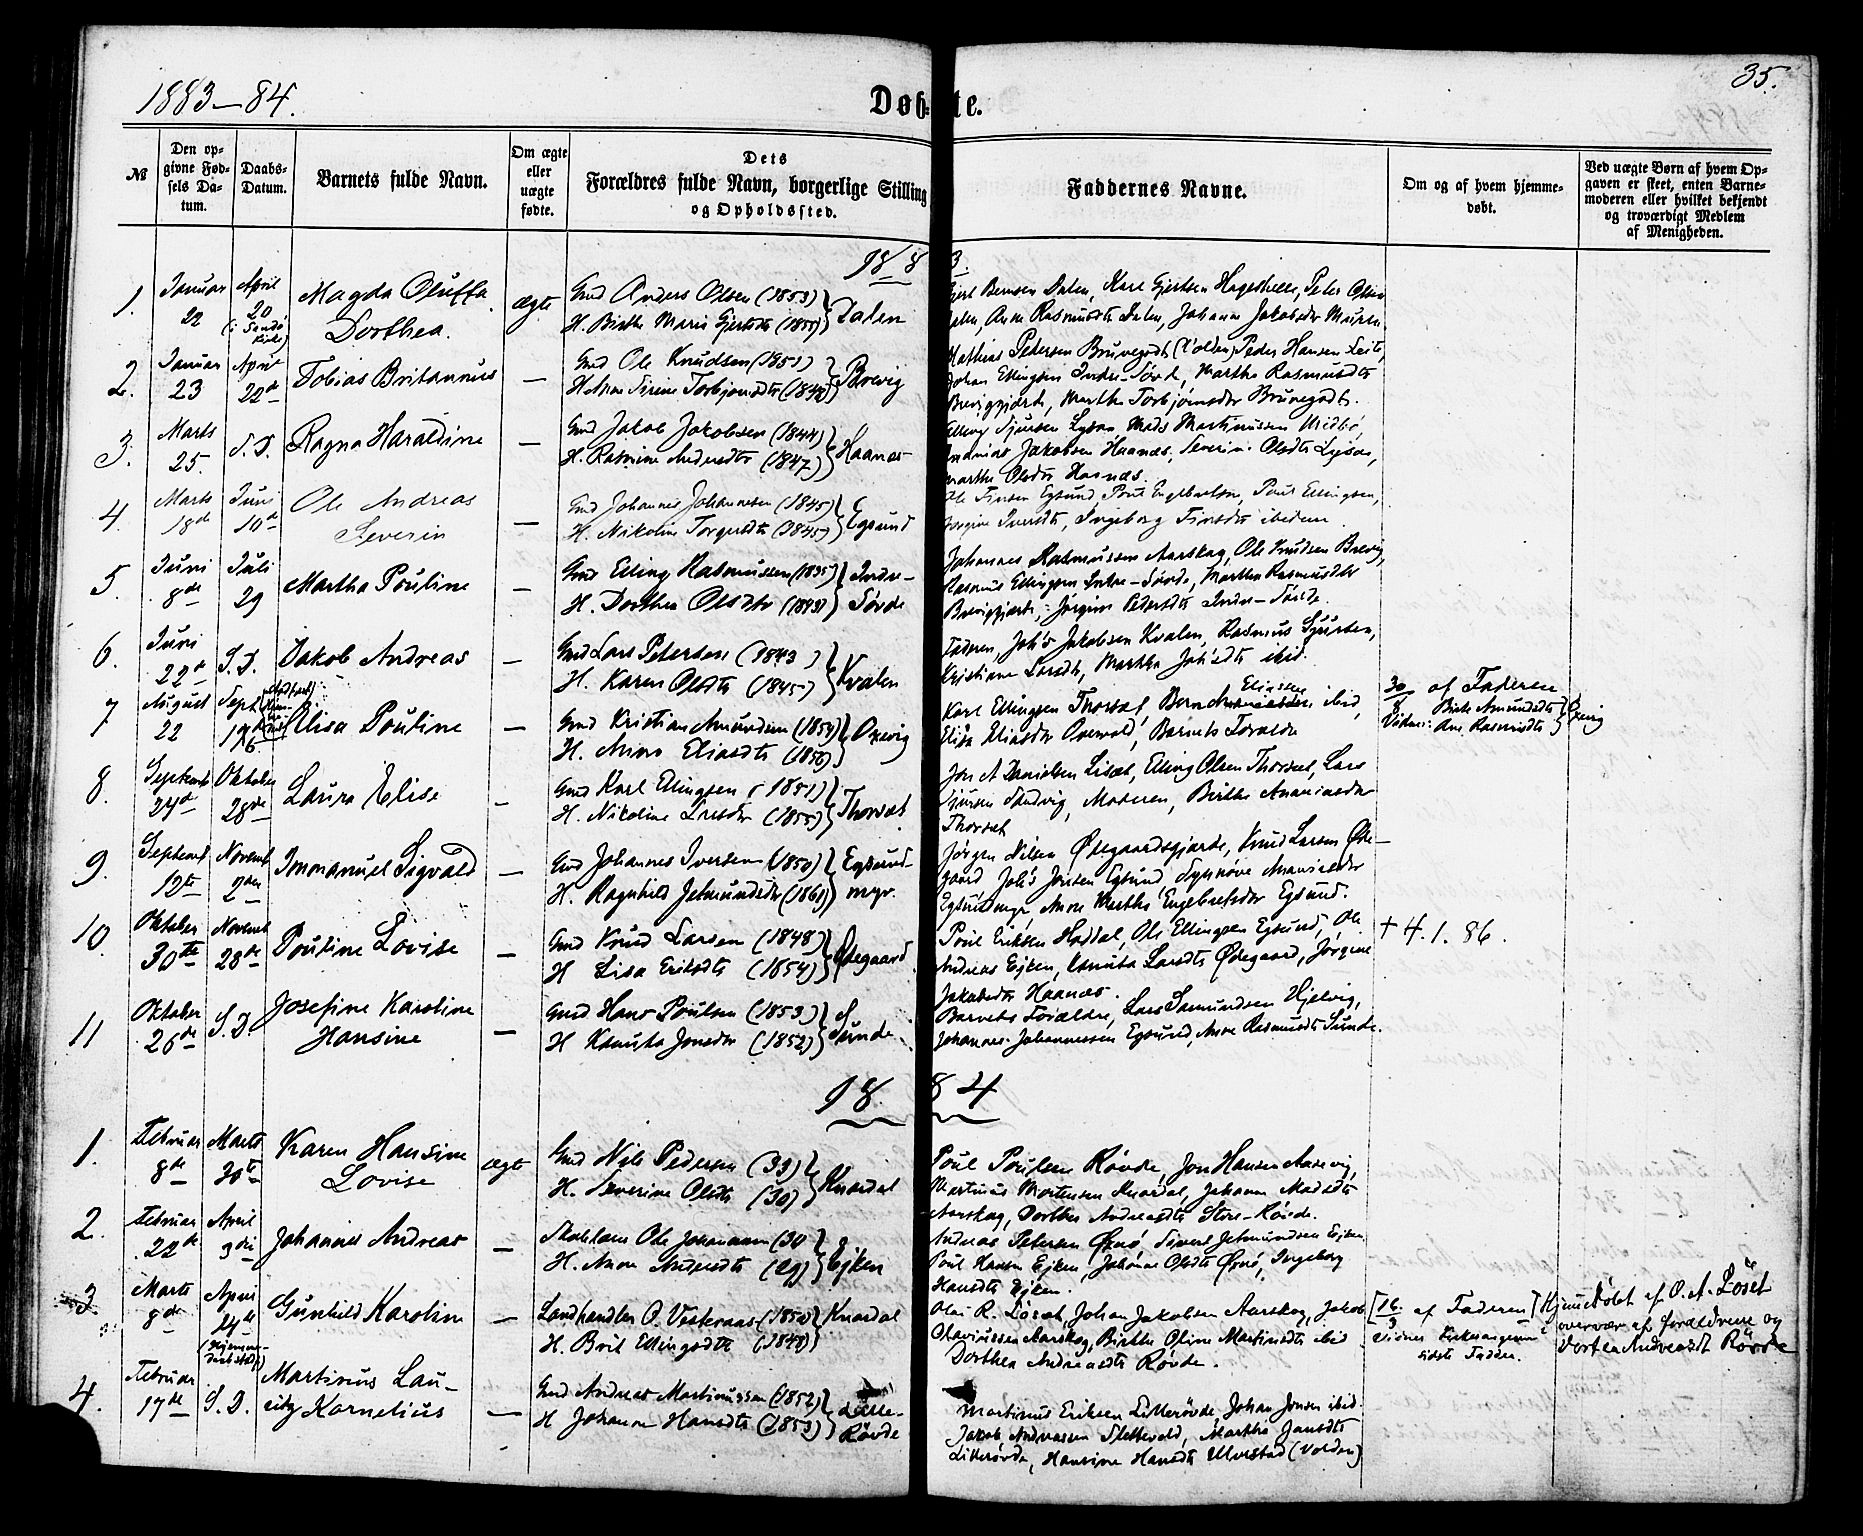 1883–84.
Døbte.
35.
№
Den opgivne Fødsels Datum.
Daabs-Datum.
Barnets fulde Navn.
Om ægte eller uægte fødte.
Dets Forældres fulde Navn, borgerlige Stilling og Opholdssted.
Faddernes Navne.
Om og af hvem hjemmedøbt.
Ved uægte Børn af hvem Opgaven er skeet, enten Barnemoderen eller hvilket bekjendt og troværdigt Medlem af Menigheden.
1883.
1. Januar 22 April 20 Magda Oluffa Dorthea. ægte
Gmd Anders Olsen (1853) H. Birthe Marie Gjertsdtr Dalen
Gjert Berntsen Dalen, Karl Gjertsen Peter Olsen
Dalen, Anne Rasmusdtr Dalen, Johanne Jakobsdtr
2. Januar 23 April 22de Tobias Britannus —
Gmd Ole Knudsen (1851) Sirene Torbjørnsdtr Brevig
Mathias Petersen Peder Hansen
Johan Ellingsen Indre-Søvde, Martha Rasmusdtr
Martha Torbjørnsdtr
3. Marts 25. S.D. Ragna Haraldine —
Gmd Jakob Jakobsen (1844) H. Rasmine Andersdtr (1847) Haanæs
Mads Martinussen
Jakobsen Haanæs, Severine Olsdtr
Marthe Olsdtr Haanæs.
4. Marts 18de Juni 10de Ole Andreas Severin —
Gmd Johannes Johannesen (1845) H. Nikoline Torgersdtr (1845) Egsund
Ole Finsen Egsund, Poul Engebretsen, Poul Ellingsen,
Jørgine Iversdtr, Ingeborg Finsdtr ibidem
5. Juni 8de Juli 29 Martha Pouline —
Gmd Elling Rasmussen (1835) H. Dorthea Olsdtr (1843) Indre-Søvde
Johannes Rasmussen Aarskog, Ole Knudsen Brevig,
Rasmus Ellingsen Indre-Søvde, Martha Rasmusdtr
Jørgine Pedersdtr Indre-Søvde
6. Juni 22de S.D. Jakob Andreas —
Gmd Lars Petersen (1843) H. Karen Olsdtr (1845) Kvalen
Faderen, Joh's Jakobsen Kvalen, Rasmus
Kristiane Larsdtr, Martha Joh'sdtr ibid.
7 August 22 Sept. Elisa Pouline —
Gmd Kristian Amundsen H. Anne Eliasdtr (1856) Oxevig
Karl Ellingsen Thorsæt, Bernt Eliassen ibid,
Elisa Eliasdtr Overvold, Barnets Forældre
30/8 af Faderen
Vidner: Birthe Amundsdtr Ane Rasmusdtr Oxevig
8. Septembr 24de Oktober 28de Laura Elise —
Gmd Karl Ellingsen (1851) H. Nikoline Larsdtr (1855) Thorsæt
Jon A Danielsen Elling Olsen Thorsæt, Lars
Sjursen Sandvig, Moderen, Birthe Ananiasdtr
Thorsæt
9. Septembr 12te Novembr 2den Immanuel Sigvald —
Gmd Johannes Iversen (1850) H. Ragnhild Jetmundsdtr (1861) Egsundmyr.
Jørgen Nilsen Ødegaardsgjærde, Knud Larsen Ødegaard,
Joh's Jonsen Egsund, Synnøve Ananiasdtr
Egsundmyr, Anne Marthe Engebretsdtr Egsund.
10. Oktober 30te Novembr 28de Pouline Lovise —
Gmd Knud Larsen (1848) H Lisa Eriksdtr (1854) Ødegaard
Poul Eriksen Haddal, Ole Ellingsen Egsund, Ole
Andreas Ejken, Knuta Larsdtr Ødegaard, Jørgine
Jakobsdtr Haanæs.
† 4.1.86.
11 Oktober 26de S.D. Josefine Karoline Hansine —
Gmd Hans Poulsen (1853) H Knuta Jonsdtr (1852) Sunde
Barnets Forældre, Lars Samundsen Hjelvig,
Johannes Johannessen Egsund, Anne Rasmusdtr Sunde.
1884
1. Februar 8de Marts 30te Karen Hansine Lovise ægte
Gmd Nils Pedersen (33) H. Severine Olsdtr (30) Knardal
Poul Poulsen Røvde, Jon Hansen Aasevig,
Martinus Mortensen Knardal, Johanne Madsdtr
Aarskog, Dorthea Andreasdtr Store-Røvde.
2. Februar 22de April 3die Johannes Andreas —
Ole Johannessen (30 H. Anne Andersdtr (29) Ejken
Andreas Petersen Ørnø, Sivert Jetmundsen Ejken
Poul Hansen Ejken, Johanne Olsdtr Ørnø, Ingeborg
Hansdtr Ejken.
3. Marts 8de April Gunhild Karoline —
Landhandler O. Vesternaas (1850) H. Brit Ellingsdtr (1848) Knardal
Olai R. Løset, Johan Jakobsen Aarskog, Jakob
Oluviussen Aarskog, Birthe Oline Martinsdtr ibid
Dorthea Andreasdtr Røvde.
[16/3 af Faderen]
sidste Fadder.
Hjemmedøbt af O. A. Løset
overvær af forældrene og
Dortea Andreasdt Røvde
4. Februar 17de S.D. Martinus Lauritz Kornelius —
Gmd Andreas Martinussen (1852) H Johanne Hansdtr (1853) Lille-Røvde
Martinus Eriksen Lillerøvde, Johan Jonsen ibid.
Jakob Andreassen Slettevold, Martha Jonsdtr
Lillerøvde, Hansine Hansdtr Ulvestad (Volden)